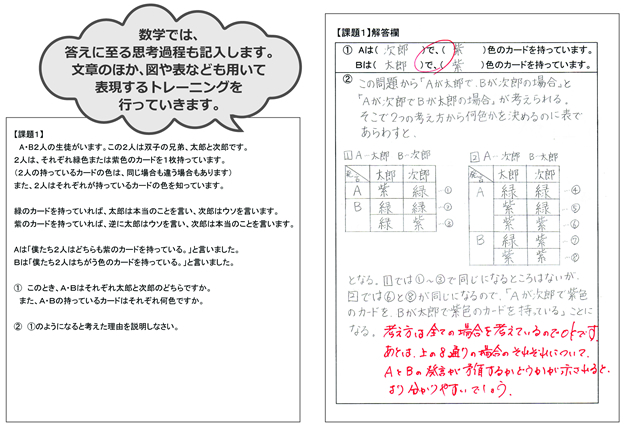 数学では、
答えに至る思考過程も記入します。
文章のほか、図や表なども用いて
表現するトレーニングを
行っていきます。
【課題1】
A・B2人の生徒がいます。この2人は双子の兄弟、太郎と次郎です。
2人は、それぞれ緑色または紫色のカードを1枚持っています。
（2人の持っているカードの色は、同じ場合も違う場合もあります）
また、2人はそれぞれが持っているカードの色を知っています。
緑のカードを持っていれば、太郎は本当のことを言い、次郎はウソを言います。
紫のカードを持っていれば、逆に太郎はウソを言い、次郎は本当のことを言います。
Aは「僕たち2人はどちらも紫のカードを持っている。」と言いました。
Bは「僕たち2人はちがう色のカードを持っている。」と言いました。
① このとき、A・Bはそれぞれ太郎と次郎のどちらですか。
また、A・Bの持っているカードはそれぞれ何色ですか。
② ①のようになると考えた理由を説明しなさい。
【課題1】解答欄
① Aは（ 次郎 ）で、（ 紫 ）色のカードを持っています。
Bは（ 太郎 ）で、（ 紫 ）色のカードを持っています。
②
この問題から「Aが太郎で、Bが次郎の場合」と
「Aが次郎でBが太郎の場合」が考えられる。
そこで2つの考え方から何色かを決めるのに表で
あらわすと、
1 A-太郎 B-次郎
発言 太郎 次郎
A 紫 緑 ①
B 緑 緑 ②
緑 紫 ③
2 A-次郎 B-太郎
発言 太郎 次郎
A 緑 緑 ④
紫 緑 ⑤
紫 紫 ⑥
B 緑 紫 ⑦
紫 紫 ⑧
となる。1では①～③で同じになるところはないが、
2では⑥と⑧が同じになるので、「Aが次郎で紫色
のカードを、Bが太郎で紫色のカードを持っている」ことに
なる。
考え方は全ての場合を考えているのでOKです。
あとは、上の8通りの場合のそれぞれについて、
AとBの発言が矛盾するかどうかが示されると、
より分かりやすいでしょう。